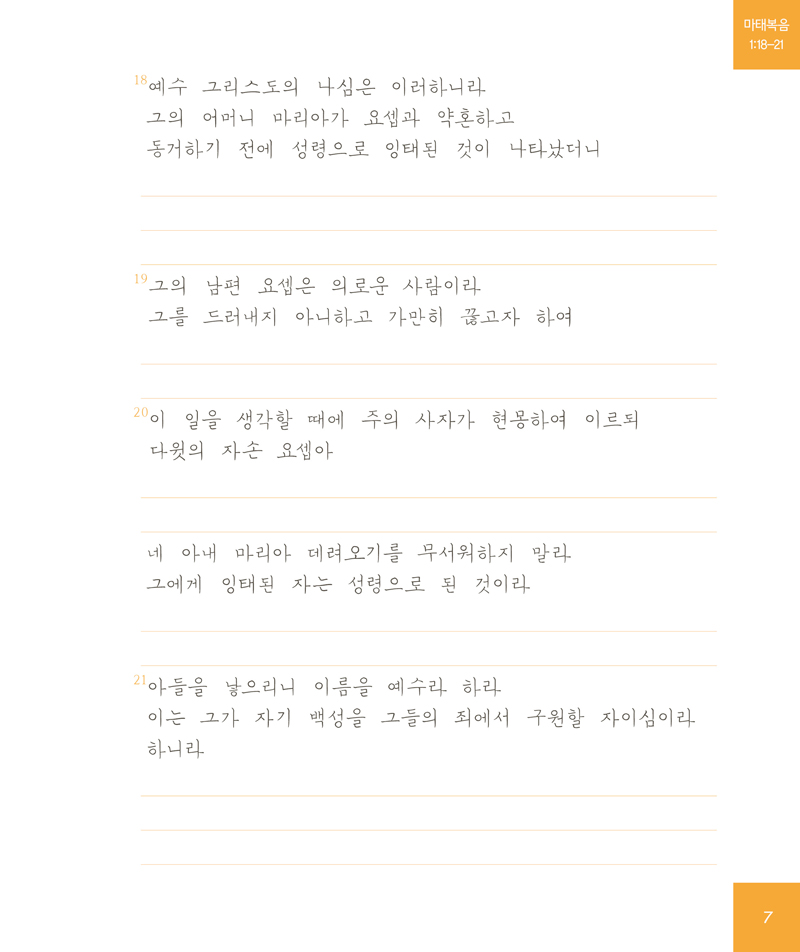 마태복음
1:18-21
18 예수 그리스도의 나심은 이러하니라
그의 어머니 마리아가 요셉과 약혼하고
동거하기 전에 성령으로 잉태된 것이 나타났더니
19 그의 남편 요셉은 의로운 사람이라
그를 드러내지 아니하고 가만히 끊고자 하여
20 이 일을 생각할 때에 주의 사자가 현몽하여 이르되
다윗의 자손 요셉아
네 아내 마리아 데려오기를 무서워하지 말라
그에게 잉태된 자는 성령으로 된 것이라
21 아들을 낳으리니 이름을 예수라 하라
이는 그가 자기 백성을 그들의 죄에서 구원할 자이심이라
하니라
7